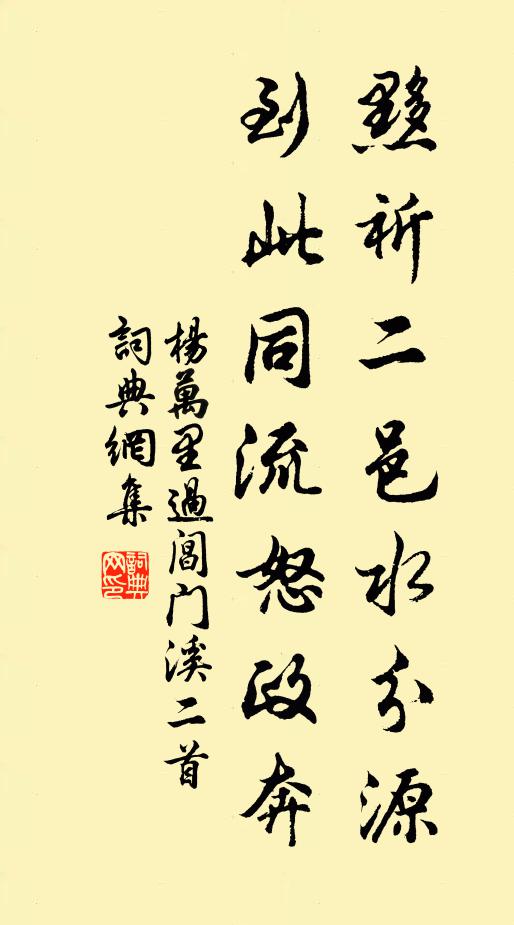 黟祈二邑水分源
到此同流怒政奔
楊萬里過閶門溪二首
詞典網集
詞典網印